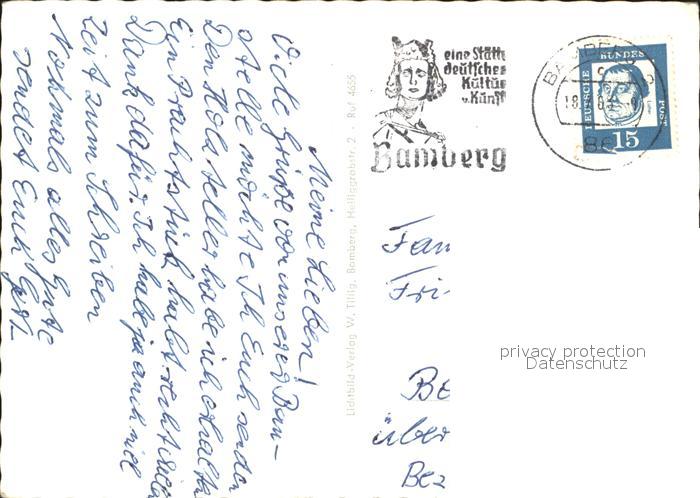 Meine Lieben!
Viele Grüße von unserer Bau-
stelle möchte ich Euch senden
Den Holzteller habe ich erhalten
Ein Prachtstück, habt recht vielen
Dank dafür. Ich habe ja auch viel
Zeit zum Schreiben
Nochmals alles Gute
sendet Euch
Lichtbild-Verlag W. Tillig, Bamberg, Heiliggrabstr. 2 Ruf 4655
eine Stätte
deutscher
Kultur
u. Kunst
Bamberg
BAMBERG
DEUTSCHE
BUNDES
POST
15
Fam
Fri-
Be
über
Bez
privacy protection
Datenschutz